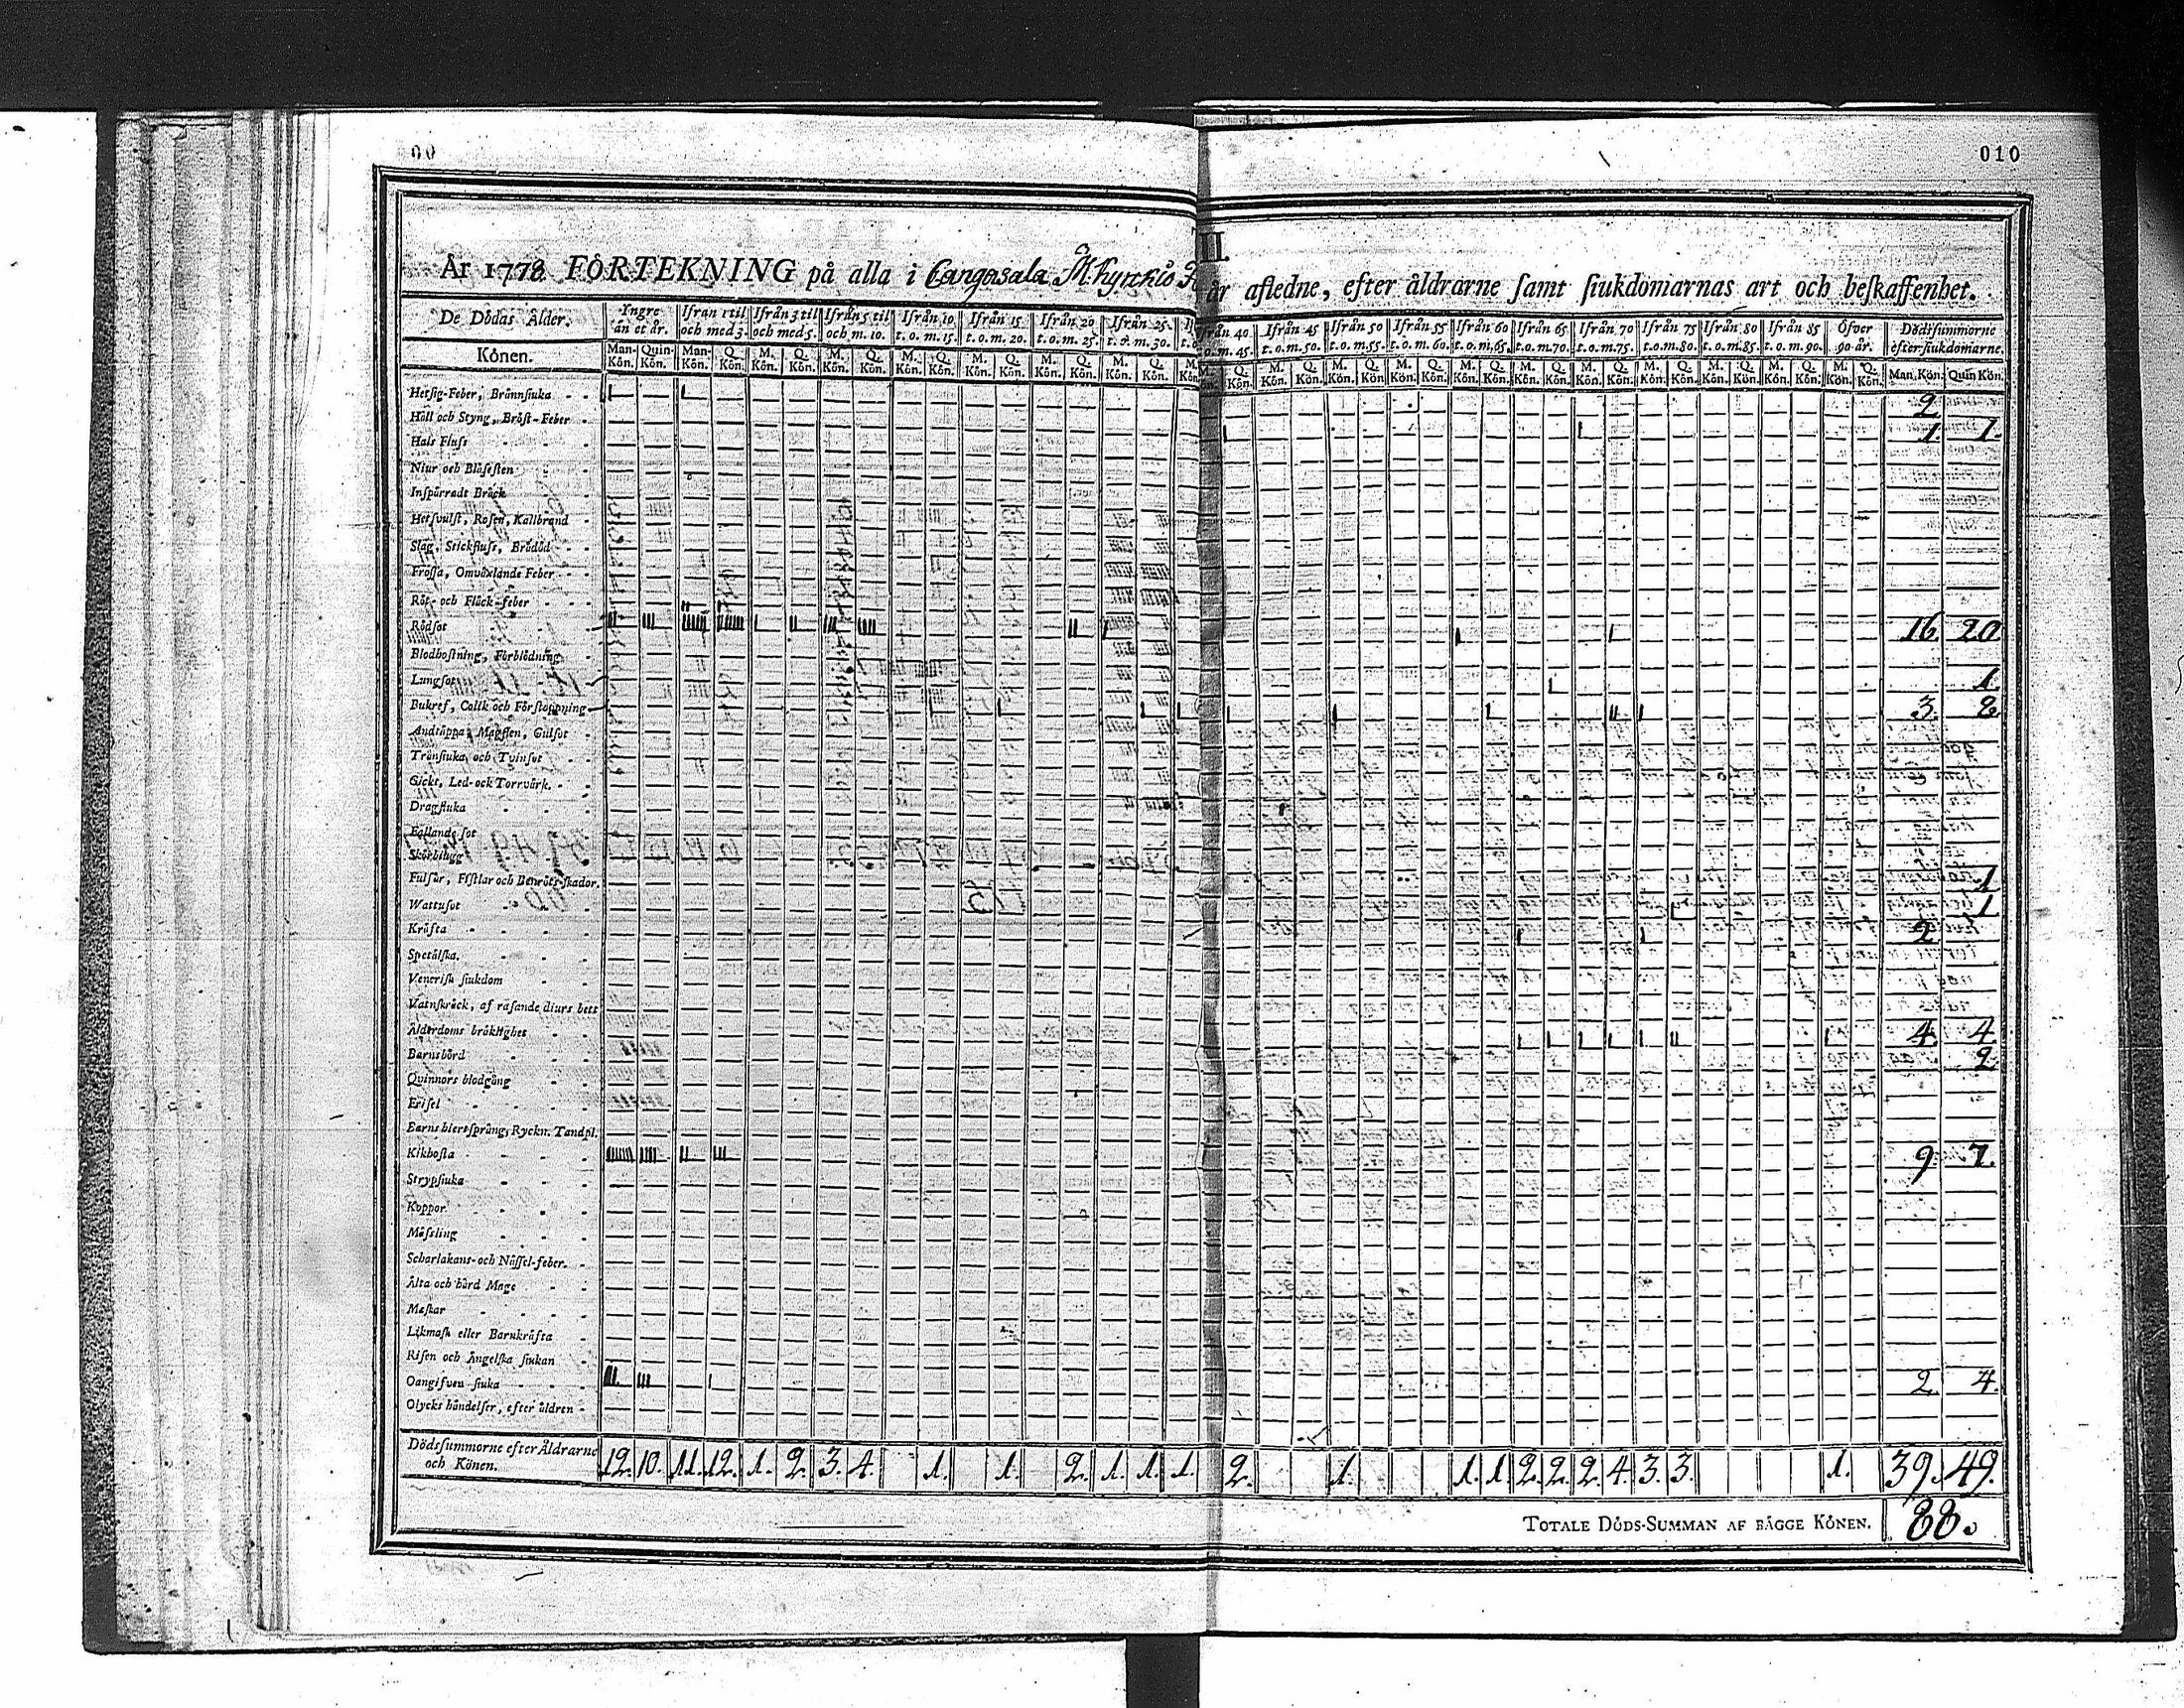 00
010
III.
År 1778. FÖRTEKNING på alla i Cangasala M. kyrckio
år afledne, efter åldrarne samt siukdomarnas art och beskaffenhet.
De Dödas Ålder. Yngre än et år. Ifrån 1 til och med 3. Ifrån 3 til och med 5. Ifrån 5 til och m. 10. Ifrån 10 t. o. m. 15. Ifrån 15 t. o. m. 20. Ifrån 20 t. o. m. 25. Ifrån 25 t. o. m. 30. Ifrån 40 t. o. m. 45. Ifrån 45 t. o. m. 50. Ifrån 50 t. o. m. 55. Ifrån 55 t. o. m. 60. Ifrån 60 t. o. m. 65. Ifrån 65 t. o. m. 70. Ifrån 70 t. o. m. 75. Ifrån 75 t. o. m. 80. Ifrån 80 t. o. m. 85. Ifrån 85 t. o. m. 90. Öfver 90 år. Dödssummorne efter siukdomarne.
Könen. Man-Kön. Quin-Kön. Man-Kön. Q. Kön. M. Kön. Q. Kön. M. Kön. Q. Kön. M. Kön. Q. Kön. M. Kön. Q. Kön. M. Kön. Q. Kön. M. Kön. Q. Kön. M. Kön. M. Kön. Q. Kön. M. Kön. Q. Kön. M. Kön. Q. Kön. M. Kön. Q. Kön. M. Kön. Q. Kön. M. Kön. Q. Kön. M. Kön. Q. Kön. M. Kön. Q. Kön. M. Kön. Q. Kön. M. Kön. Q. Kön. M. Kön. Q. Kön. Man. Kön. Quin Kön.
Hetsig-Feber, Brännsiuka 2
Håll och Styng, Bröst-Feber 1. 1.
Hals Fluss
Niur och Blåsesten
Inspärradt Bråck
Hetsvulst, Rosen, Kallbrand
Slag, Stickfluss, Brådöd
Frossa, Omväxlande Feber
Röt- och Fläck-feber
Rödsot 16. 20
Blodhostning, Förblödning
Lungsot 1.
Bukref, Colik och Förstoppning 3. 8
Andtäppa, Magflen, Gulsot
Trånsiuka och Tvinsot
Gickt, Led-ock Torrvärk.
Dragsiuka
Fallande sot
Skörbiugg
Fulsår, Fistlar och Benröts-skador. 1
Wattusot 1
Kräfta 2
Spetälska.
Venerisk siukdom
Vatnskräck, af rasande diurs bett
Ålderdoms bräklighet 4. 4.
Barnsbörd 2
Qvinnors blodgång
Erisel
Barns hiertsprång, Ryckn. Tandpl.
Kikhosta 9. 7.
Strypsiuka
Koppor
Mässling
Scharlakans-och Nässel-feber.
Älta och hård Mage
Maskar
Likmask eller Barnkräfta
Risen och Ängelska siukan
Oangifven siuka 2. 4.
Olycks händelser, efter åldren
Dödssummorne efter Åldrarne och Könen. 12. 10. 11. 12. 1. 2. 3. 4. 1. 1. 2. 1. 1. 1. 2. 1. 1. 1. 2. 2. 2. 4. 3. 3. 1. 39. 49.
TOTALE DÖDS-SUMMAN AF BÄGGE KÖNEN. 88.